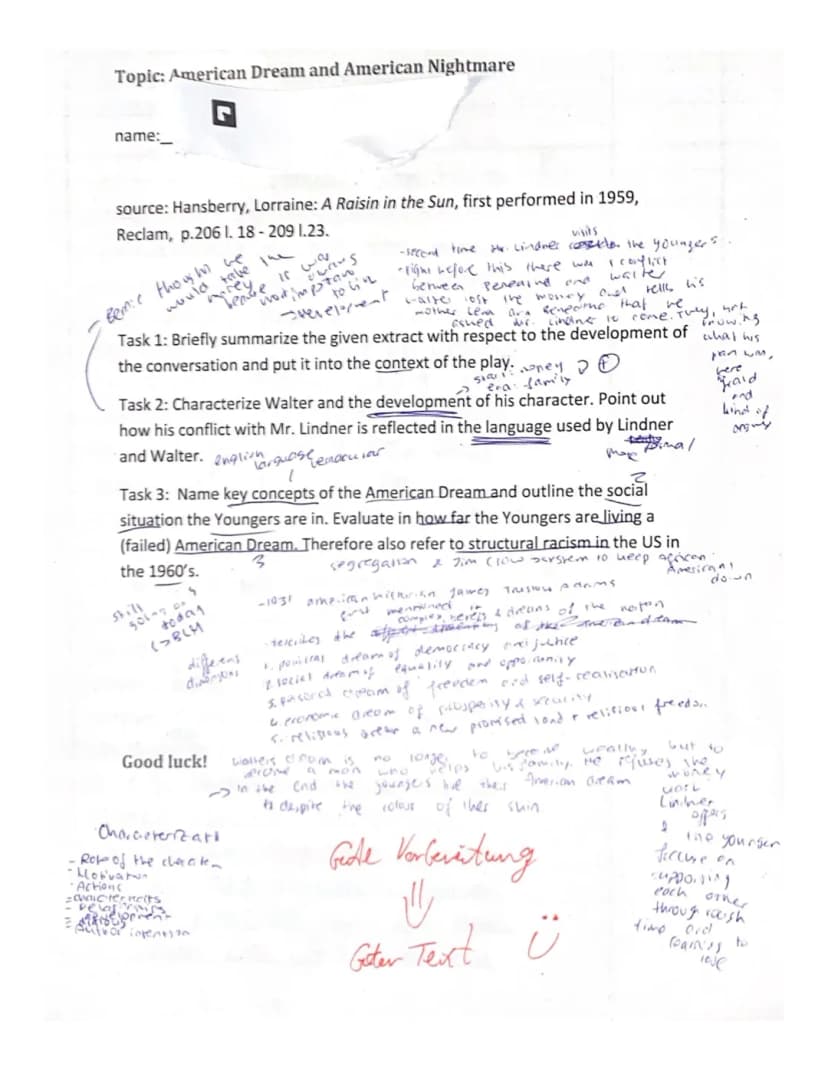 Topic: American Dream and American Nightmare
name:_
source: Hansberry, Lorraine: A Raisin in the Sun, first performed in 1959,
Reclam, p.206 l. 18 - 209 l.23.
- second time Mr. Lindner visits the youngers.
- right before this there was a conflict
between Beneatha and Walter
Walter lost the money and tells his
mother Lena and Beneatha that he
asked Mr. Lindner to come. They, not
knowing
what his
plan was,
were
afraid
and
kind of
angry
thought he
would take the
money
was
important
to him
→ development
Task 1: Briefly summarize the given extract with respect to the development of
the conversation and put it into the context of the play.
start: money
end: family
Task 2: Characterize Walter and the development of his character. Point out
how his conflict with Mr. Lindner is reflected in the language used by Lindner
and Walter.
english language
more
Task 3: Name key concepts of the American Dream and outline the social
situation the Youngers are in. Evaluate in how far the Youngers are living a
(failed) American Dream. Therefore also refer to structural racism in the US in
the 1960's.
2
3
segregation & Jim Crow system to keep african
Americans
down
still
going on
today
↳ BLM
- 1931 american historian James Truslow Adams
first mentioned it
describes the complex beliefs & dreams of the nation
different
dimensions
1. political dream of democracy and justice
2. social dream of equality and opportunity
3. personal dream of freedom and self-realisation
4. economic dream of prosperity & security
5. religious dream a new promised land & religious freedom
Good luck!
Walters dream is no longer to become wealthy but to
become a man who helps his family. He refuses the
money
Lindner
offers
→ In the end the youngers live their American dream
despite the colour of their skin
& the younger
focuse on
supporting
each other
through rough
time and
learning to
love
Characterization
- Role of the character
- Motivation
- Actions
- relationships
- development
- author intention
Gute Vorbereitung
⇓
Guter Text